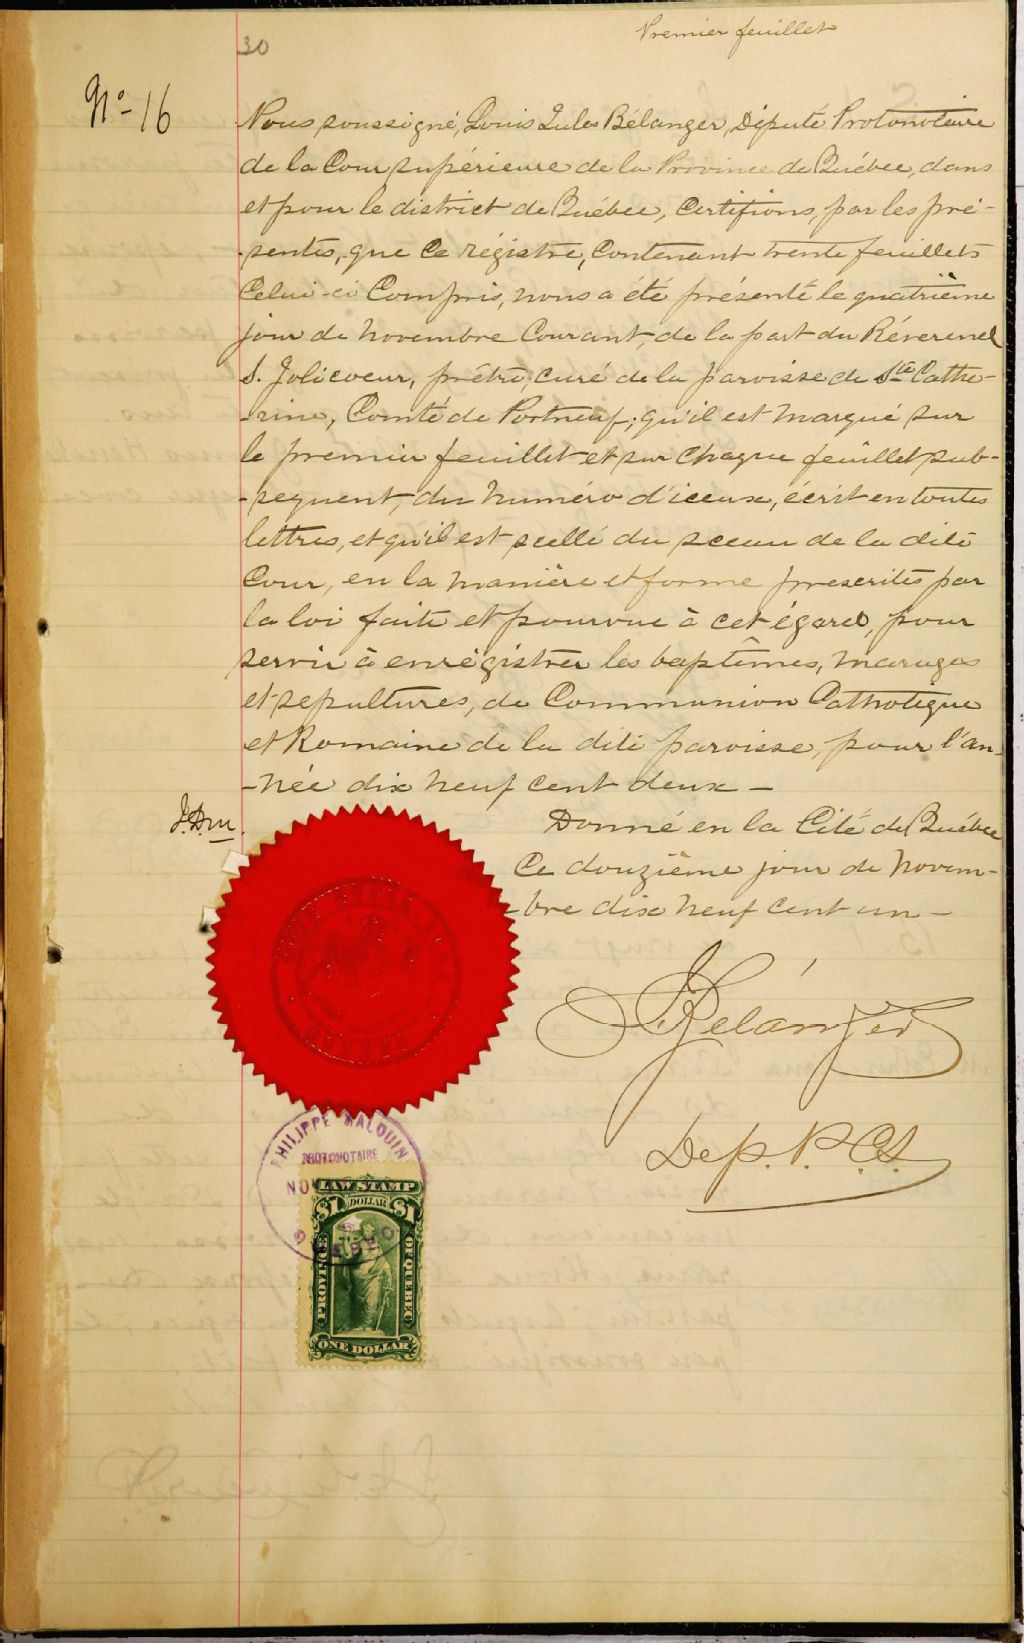 30
Premier feuillet
No- 16
Nous soussigné, Louis Jules Bélanger, Député Protonotaire
de la Cour supérieure de la Province de Québec, dans
et pour le district de Québec, Certifions, par les pré-
-sentes, que ce régistre, contenant trente feuillets
Celui-ci Compris, nous a été présenté le quatrième
jour de novembre Courant, de la part du Réverend
S. Jolicoeur, prêtre, curé de la paroisse de Ste Cathe-
-rine, Comté de Portneuf; qu'il est marqué sur
le premier feuillet et sur chaque feuillet sub-
-sequent, du numéro d'iceux, écrit en toutes
lettres, et qu'il est scellé du sceau de la dite
Cour, en la manière et forme prescrites par
la loi faite et pourvue à cet égard, pour
servir à enrégistrer les baptêmes, mariages
et sepultures, de Communion Catholique
et Romaine de la dite paroisse, pour l'an-
-née dix neuf cent deux -
Donné en la Cité de Québec
Ce douzième jour de Novem-
-bre dix neuf cent un -
Bélanger
Dep. P.C.S.
PHILIPPE MALOUIN
PROTONOTAIRE
QUEBEC
LAW STAMP
$1 DOLLAR $1
PROVINCE OF QUEBEC
ONE DOLLAR